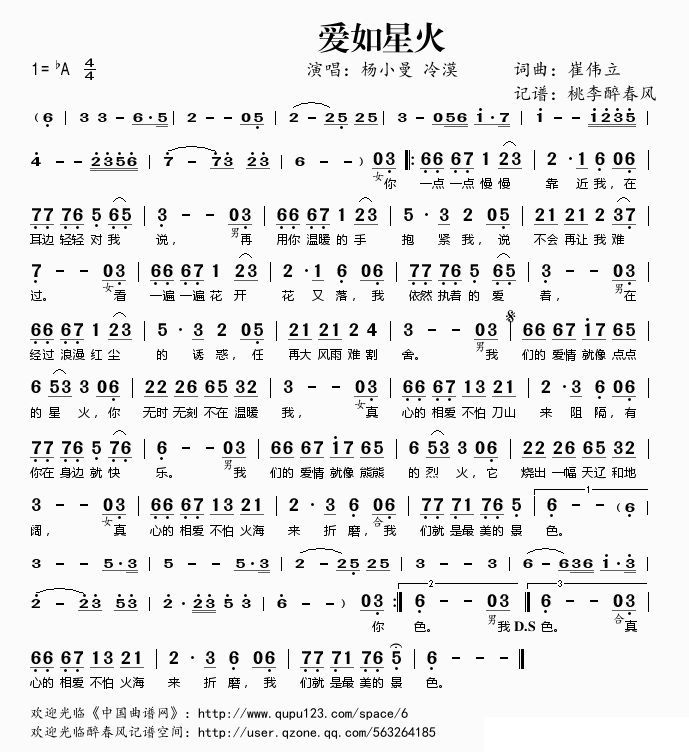 爱如星火
1=♭A 4/4
演唱：杨小曼 冷漠 词曲：崔伟立
记谱：桃李醉春风
(6 | 3 3 - 6·5 | 2 - - 05 | 2 - 25 25 | 3 - 056 1·7 | 1 - - 1235 |
4 - - 2356 | 7 - 73 23 | 6 - - ) 03 |: 66 67 1 23 | 2 ·1 6 06 |
女你 一点 一点 慢慢 靠 近 我，在
77 76 5 65 | 3 - - 03 | 66 67 1 23 | 5 · 3 2 05 | 21 21 2 37 |
耳边 轻轻 对 我 说， 男再 用你 温暖 的 手 抱 紧 我，说 不会 再让 我 难
7 - - 03 | 66 67 1 23 | 2 · 1 6 06 | 77 76 5 65 | 3 - - 03 |
过。 女看 一遍 一遍 花 开 花 又 落，我 依然 执着 的 爱 着， 男在
66 67 1 23 | 5 · 3 2 05 | 21 21 2 4 | 3 - - 03 | 66 67 17 65 |
经过 浪漫 红 尘 的 诱 惑，任 再大 风雨 难 割 舍。 男我 们的 爱情 就像 点点
6 53 3 06 | 22 26 65 32 | 3 - - 03 | 66 67 13 21 | 2 · 3 6 06 |
的 星 火，你 无时 无刻 不在 温暖 我， 女真 心的 相爱 不怕 刀山 来 阻 隔，有
77 76 5 76 | 6 - - 03 | 66 67 17 65 | 6 53 3 06 | 22 26 65 32 |
你在 身边 就 快 乐。 男我 们的 爱情 就像 熊熊 的 烈 火，它 烧出 一幅 天辽 和地
3 - - 03 | 66 67 13 21 | 2 · 3 6 06 | 77 71 76 5 | 6 - - (6 |
阔， 女真 心的 相爱 不怕 火海 来 折 磨，合我 们就 是最 美的 景 色。
3 - - 5·3 | 5 - - 5·3 | 2 - 25 25 | 3 - - 3 | 6 - 636 1·3 |
2 - 23 53 | 2 · 23 5 3 | 6 - - ) 03 :| 6 - - 03 :| 6 - - 03 |
你 色。 男我 D.S 色。 合真
66 67 13 21 | 2 · 3 6 06 | 77 71 76 5 | 6 - - - ‖
心的 相爱 不怕 火海 来 折 磨，我 们就 是最 美的 景 色。
欢迎光临《中国曲谱网》：http://www.qupu123.com/space/6
欢迎光临醉春风记谱空间：http://user.qzone.qq.com/563264185